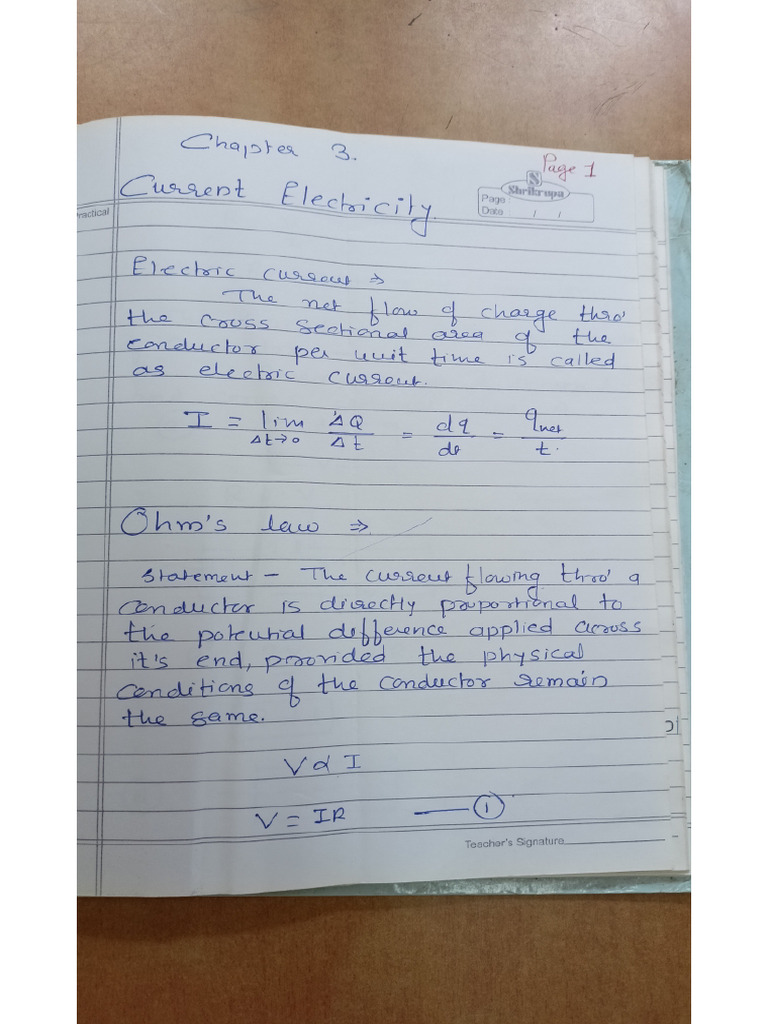 Chapter 3.
Page 1
S
Shrikrupa
Page :
Date : / /
Current Electricity.
Practical
Electric current ⇒
The net flow of charge thro'
the cross sectional area of the
conductor per unit time is called
as electric current.
I = lim ΔQ/Δt = dq/dt = qnet/t.
Δt→0
Ohm's law ⇒
Statement – The current flowing thro' a
conductor is directly proportional to
the potential difference applied across
it's end, provided the physical
conditions of the conductor remain
the same.
V α I
V = IR —— ①
Teacher's Signature